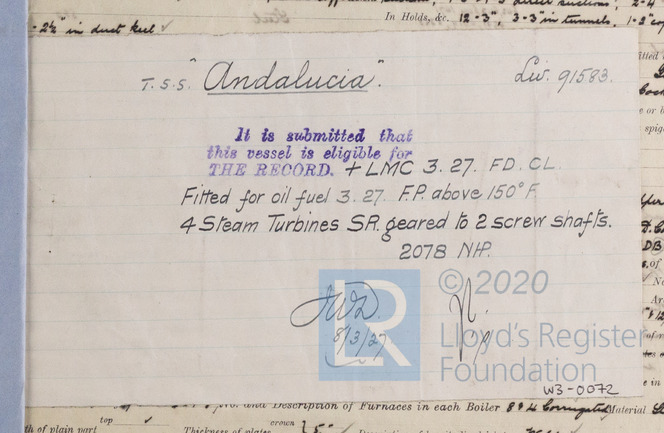 -2½" in duct keel ✓
In Holds, &c. 12-3", 3-3" in tunnels,
T.S.S. "Andalucia".
Liv. 91583.
It is submitted that
this vessel is eligible for
THE RECORD. + LMC 3.27. FD. CL.
Fitted for oil fuel 3.27. F.P. above 150°F.
4 Steam Turbines SR. geared to 2 screw shafts.
2078 NHP.
8/3/27
LR
© 2020
Lloyd's Register
Foundation
W3-0072
and Description of Furnaces in each Boiler 8 Corrugated Material
top
th of plain part
crown
Thickness of plates